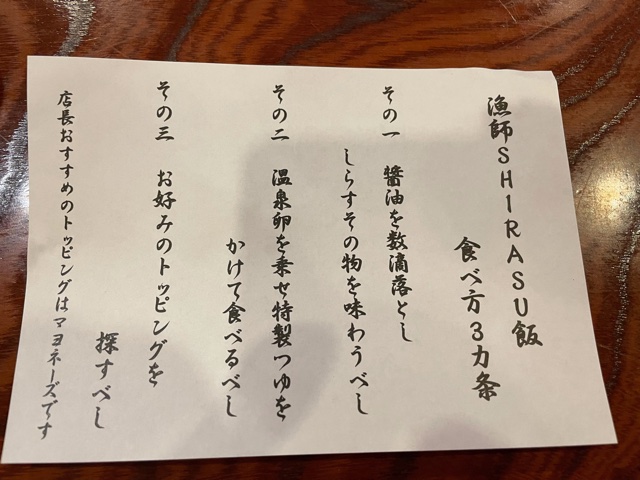 漁師SHIRASU飯
食べ方3カ条
その一 醤油を数滴落とし
しらすその物を味わうべし
その二 温泉卵を乗せ特製つゆを
かけて食べるべし
その三 お好みのトッピングを
探すべし
店長おすすめのトッピングはマヨネーズです